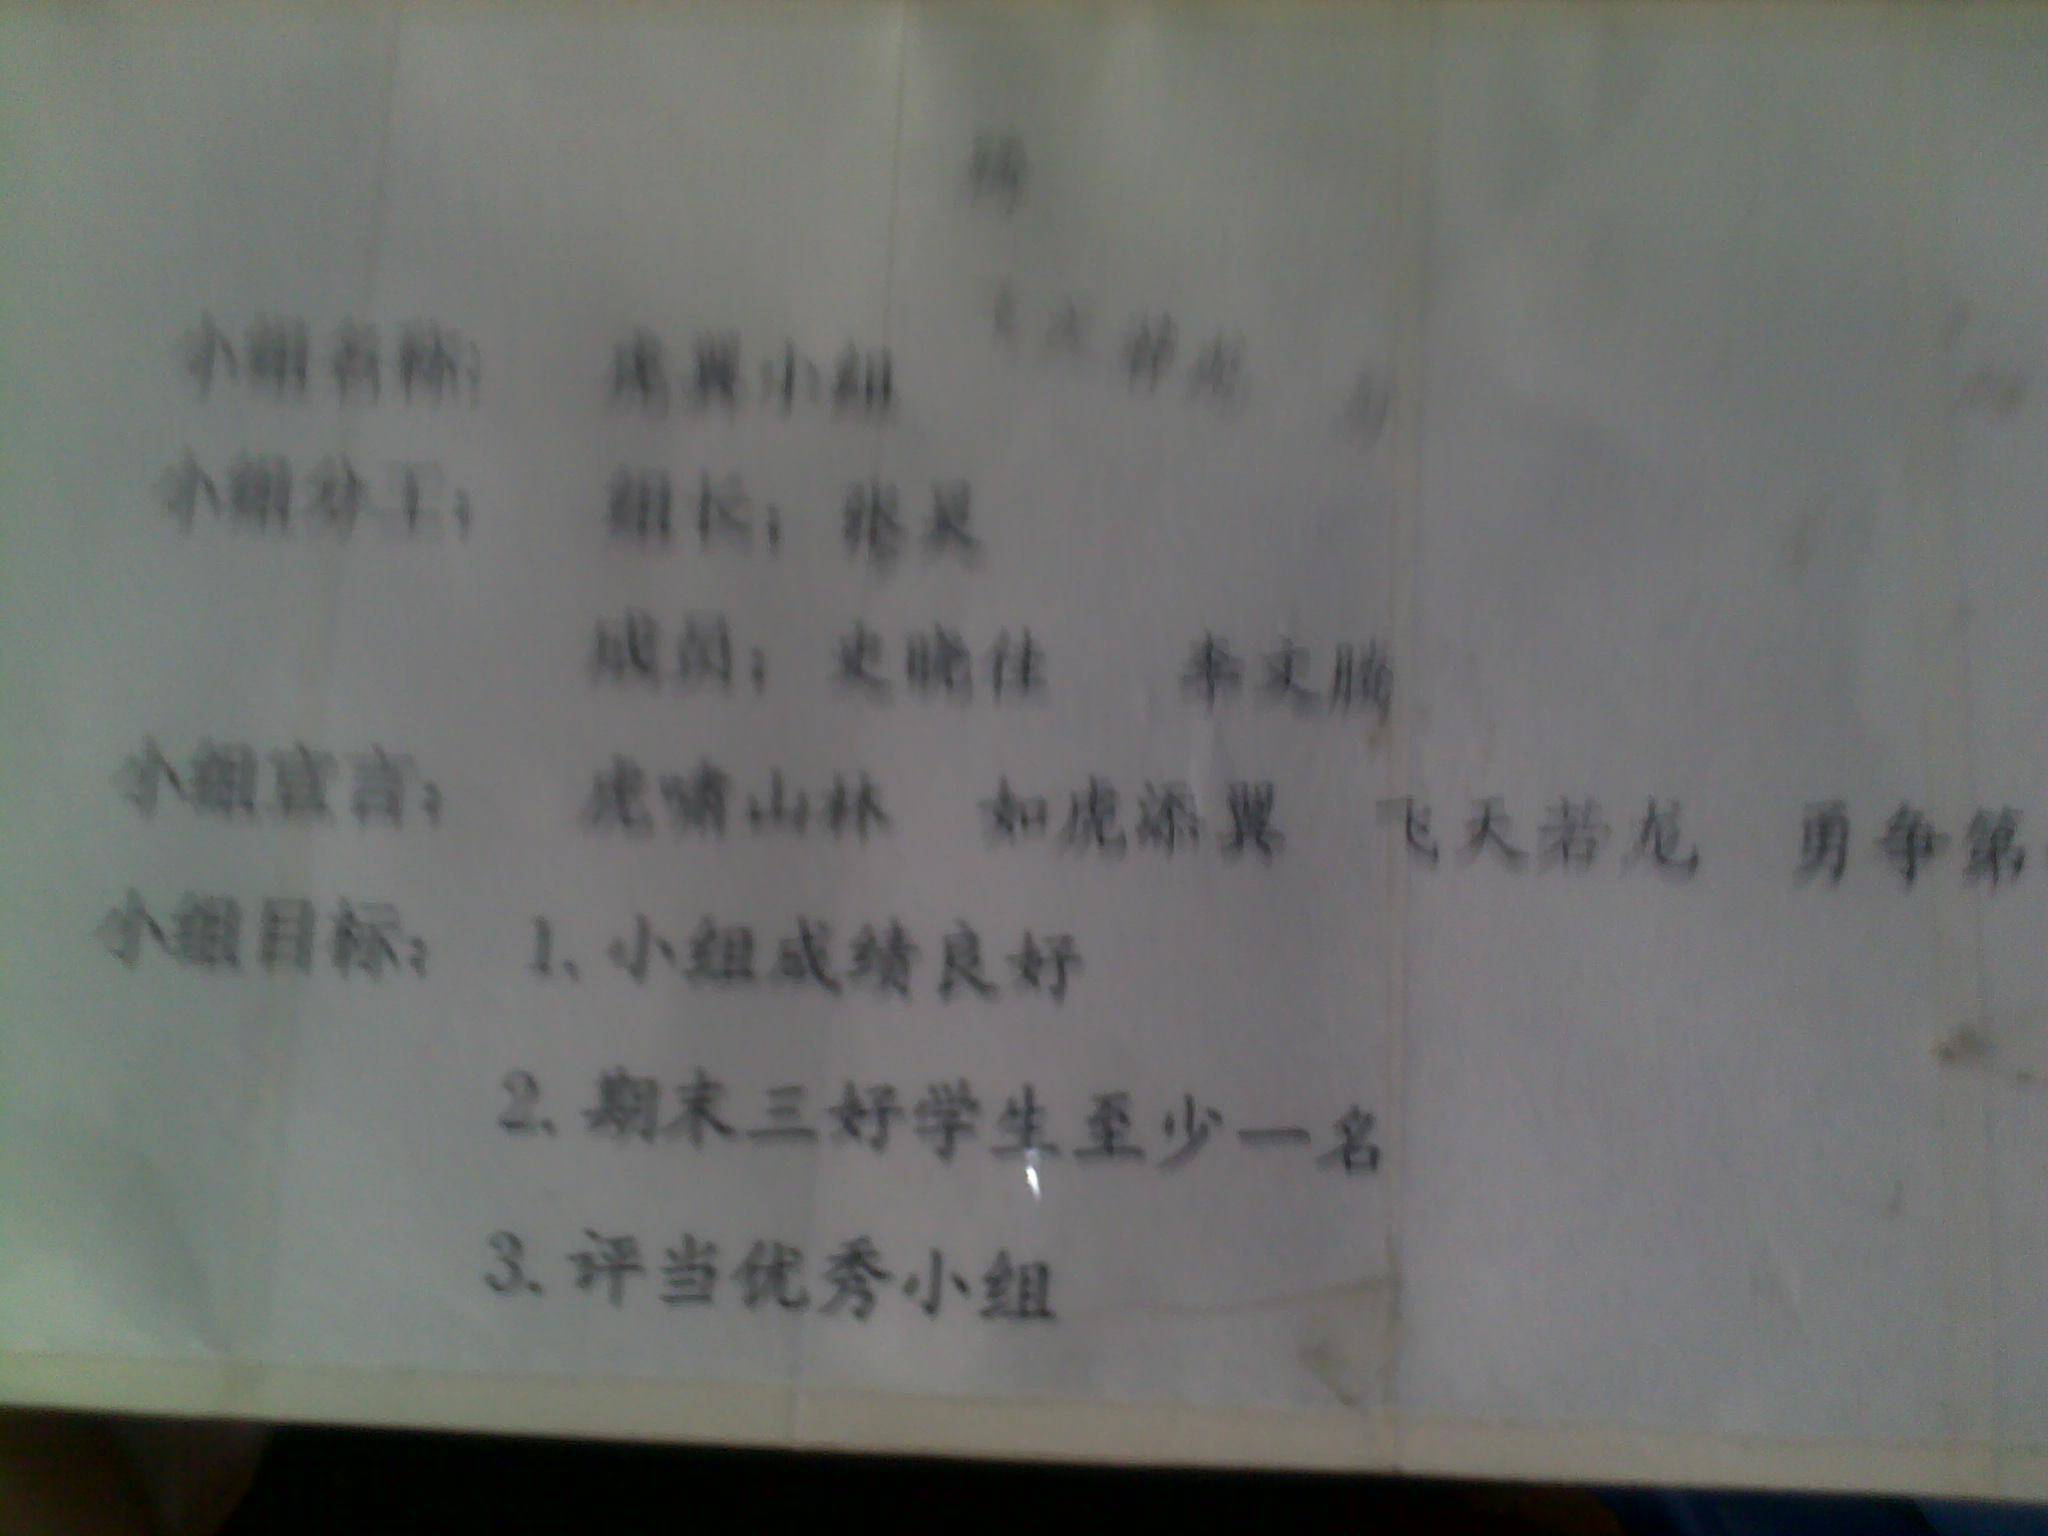 小组名称： 虎翼小组
小组分工： 组长：张昊
成员：史晓佳 李文腾
小组宣言： 虎啸山林 如虎添翼 飞天若龙 勇争第
小组目标： 1.小组成绩良好
2.期末三好学生至少一名
3.评当优秀小组